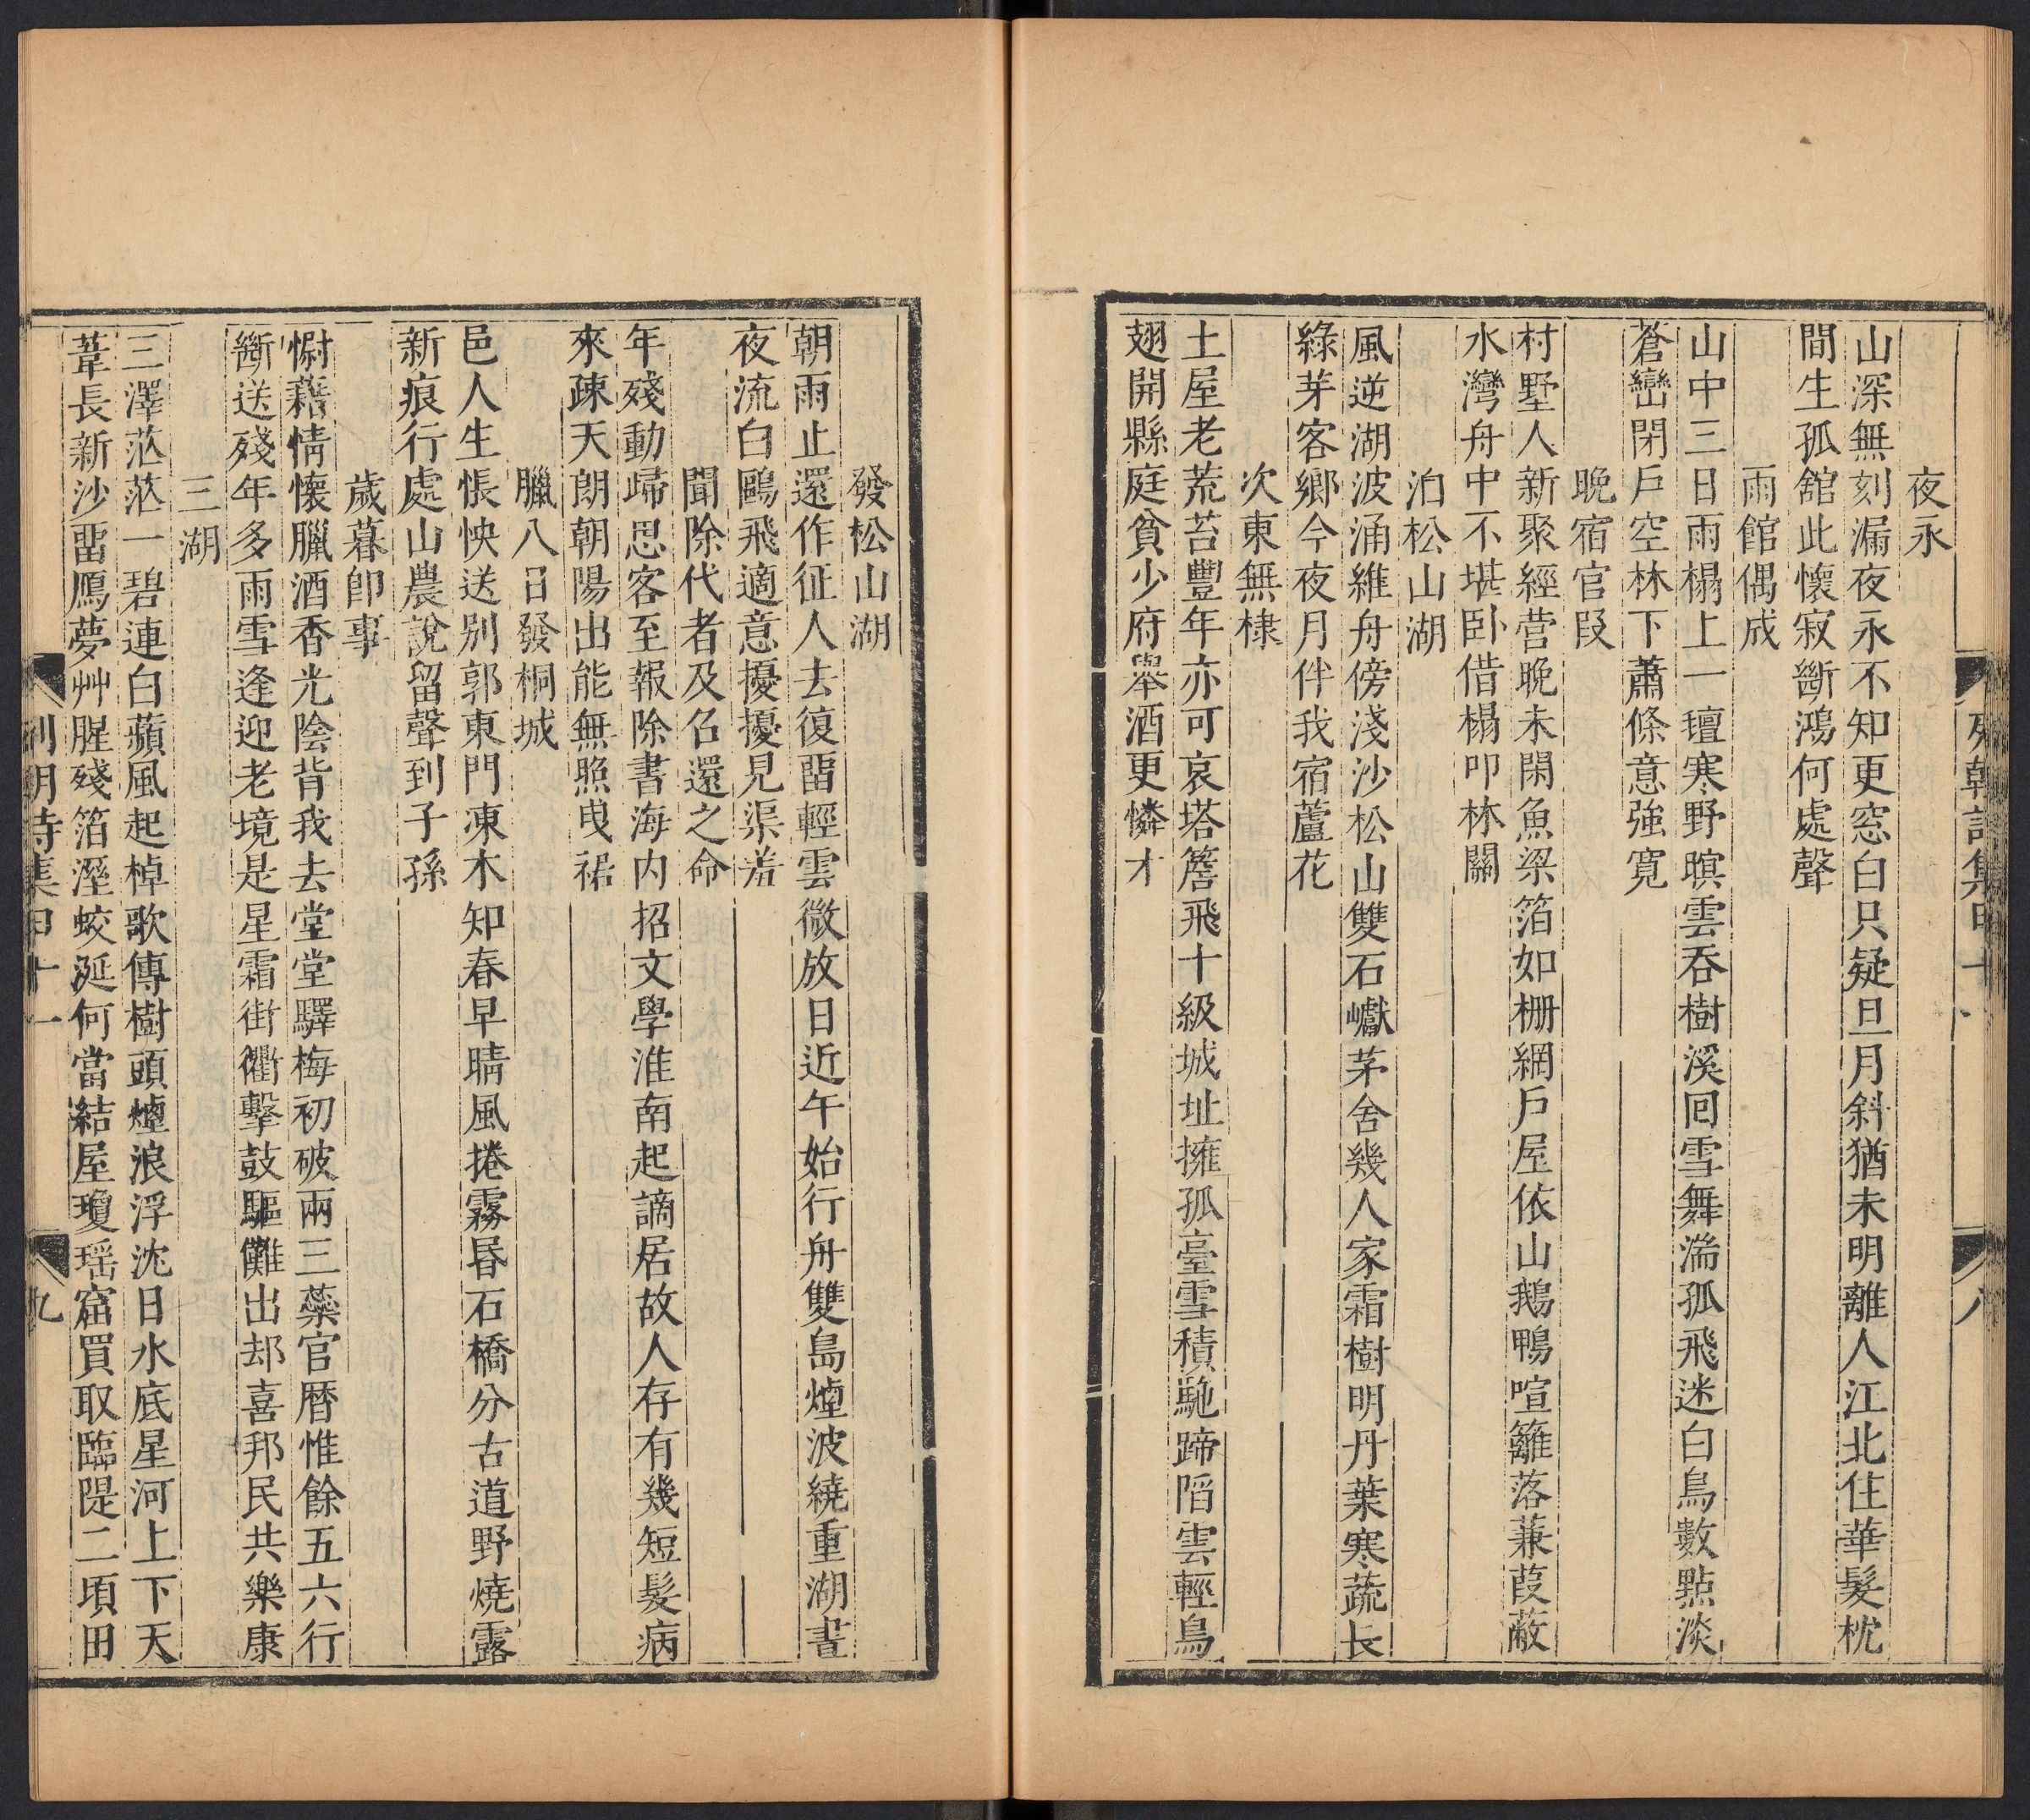 夜永
山深無刻漏夜永不知更窓白只疑旦月斜猶未明離人江北住華髮枕
間生孤舘此懷寂斷鴻何處聲
雨館偶成
山中三日雨榻上一氊寒野暝雲吞樹溪囘雪舞湍孤飛迷白鳥數點淡
蒼巒閉戶空林下蕭條意強寛
晩宿官叚
村墅人新聚經营晩未閑魚梁箔如柵網戶屋依山鵝鴨喧籬落蒹葭蔽
水灣舟中不堪卧借榻叩林關
泊松山湖
風逆湖波涌維舟傍淺沙松山雙石巘茅舍幾人家霜樹明丹葉寒蔬長
綠芽客鄉今夜月伴我宿蘆花
次東無棣
土屋老荒苔豐年亦可哀塔簷飛十級城址擁孤臺雪積駞蹄陷雲輕鳥
翅開縣庭貧少府舉酒更憐才
列朝詩集甲十一
八
發松山湖
朝雨止還作征人去復畱輕雲微放日近午始行舟雙島煙波繞重湖晝
夜流白鷗飛適意擾擾見渠羞
聞除代者及名還之命
年殘動歸思客至報除書海内招文學淮南起謫居故人存有幾短髮病
來疎天朗朝陽出能無照曳裾
臘八日發桐城
邑人生悵怏送别郭東門凍木知春早晴風捲霧昏石橋分古道野燒露
新痕行處山農說留聲到子孫
歲暮卽事
慰藉情懷臘酒香光陰背我去堂堂驛梅初破兩三蘂官曆惟餘五六行
斷送殘年多雨雪逢迎老境是星霜街衢擊鼓驅儺出却喜邦民共樂康
三湖
三澤茫茫一碧連白蘋風起棹歌傳樹頭煙浪浮沈日水底星河上下天
葦長新沙畱鴈夢艸腥殘箔溼蛟涎何當結屋瓊瑶窟買取臨隄二頃田
列朝詩集甲十一
九